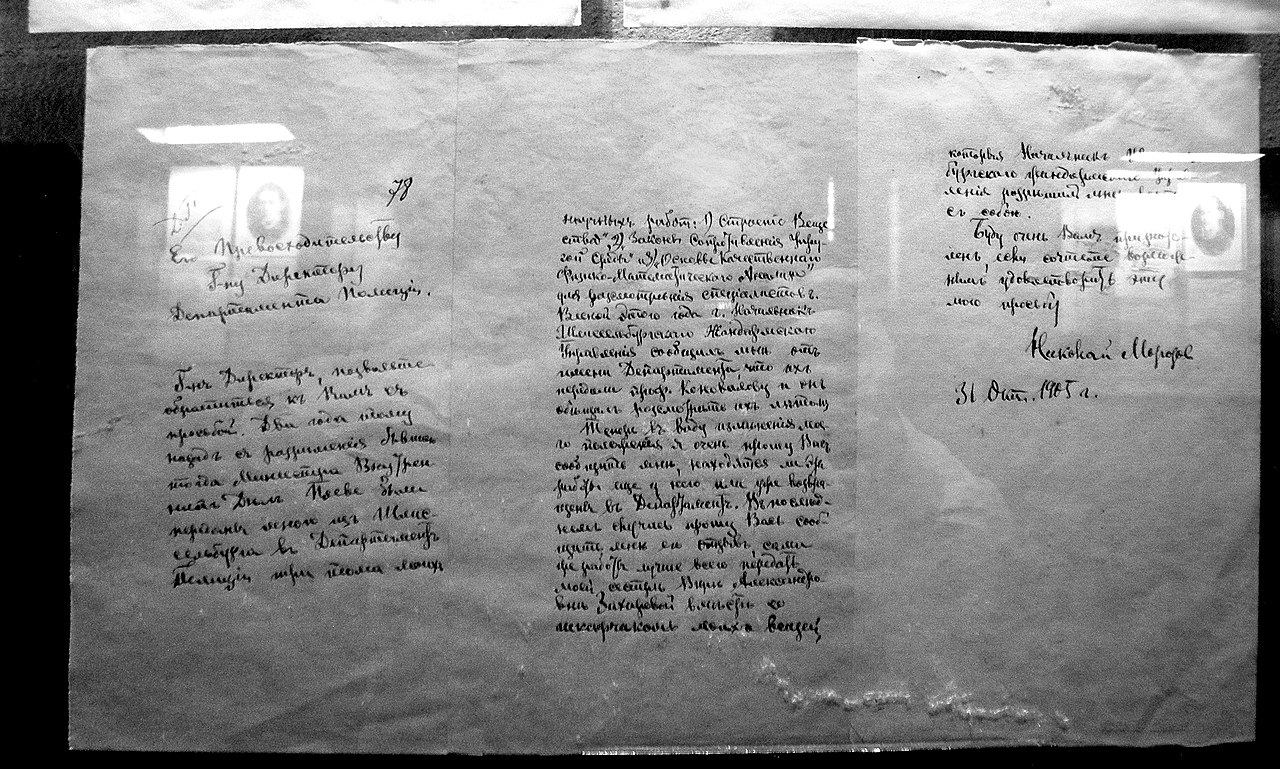 78
Его Превосходительству
Г-ну Директору
Департамента Полиціи.
Г-нъ Директоръ, позвольте
обратиться къ Вамъ съ
просьбой. Два года тому
назадъ съ разрѣшенія бывшаго
тогда Министра Внутрен-
нихъ Дѣлъ Плеве были
переданы мною изъ Шлис-
сельбурга въ Департаментъ
Полиціи три тома моихъ
научныхъ работъ: 1) Строеніе Веще
ства" 2) Законы Сопротивленія Упру-
гой Среды и 3) Основы Качественнаго
Физико-Математическаго Анализа"
для разсмотрѣнія спеціалистовъ.
Весной этого года г. Начальникъ
Шлиссельбургскаго Жандармскаго
Управленія сообщилъ мнѣ отъ
имени Департамента, что ихъ
передали проф. Коновалову и онъ
обѣщалъ разсмотрѣть ихъ лѣтомъ
Теперь въ виду измѣненія мое-
го положенія я очень прошу Васъ
сообщить мнѣ, находятся ли эти
работы еще у него или уже возвра-
щены въ Департаментъ. Въ послѣд-
немъ случаѣ прошу Васъ сооб-
щить мнѣ его отзывъ, самыя
же работы лучше всего передать
моей сестрѣ Вѣрѣ Александро-
внѣ Захаровой вмѣстѣ со
моихъ вещей
которыя Начальникъ
бургскаго Жандармскаго Управ-
ленія разрѣшилъ мнѣ
съ собою.
Буду очень Вамъ признате-
ленъ, если сочтете возмож-
нымъ удовлетворить эту
мою просьбу
Николай Морозов
31 Окт. 1905 г.